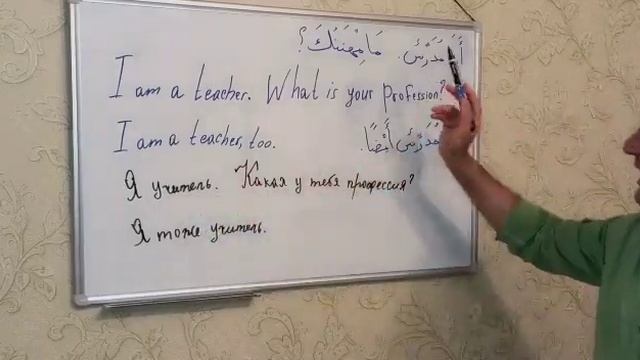 أَنَا مُدَرِّسٌ. مَا مِهْنَتُكَ؟
I am a teacher. What is your profession?
I am a teacher, too.
مُدَرِّسٌ أَيْضًا.
Я учитель. Какая у тебя профессия?
Я тоже учитель.